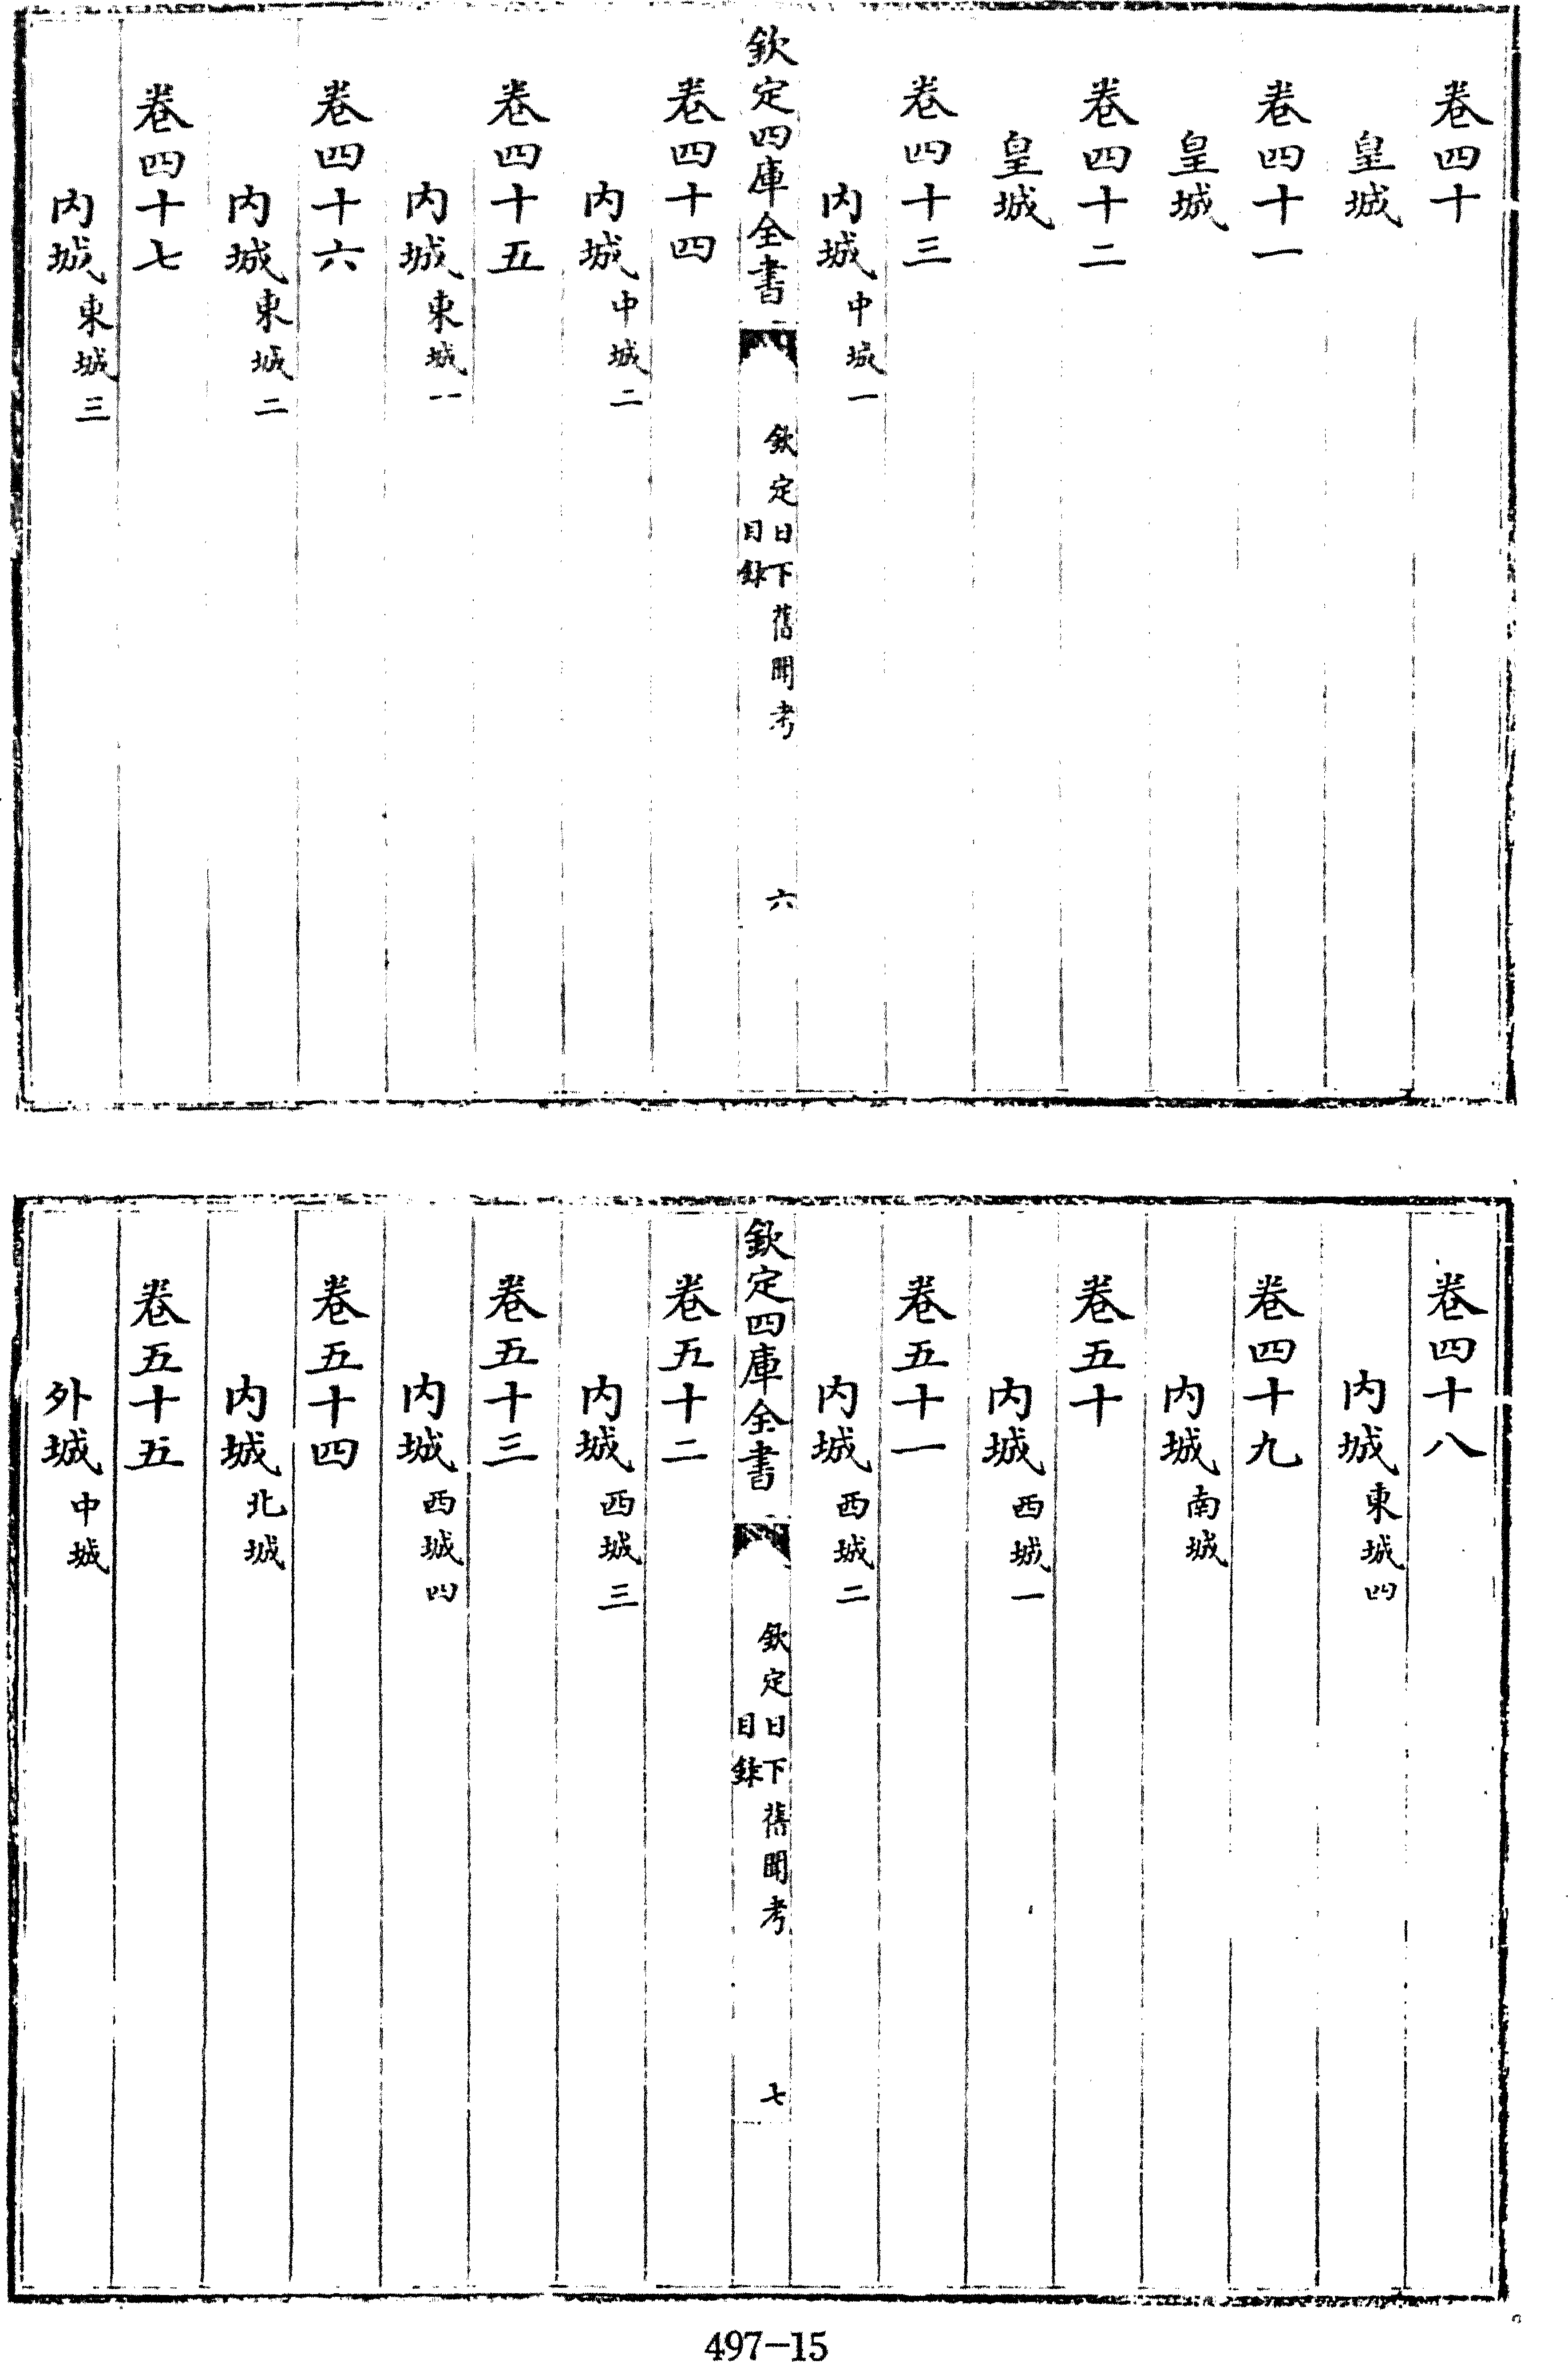 卷四十
皇城
卷四十一
皇城
卷四十二
皇城
卷四十三
内城中城一
欽定四庫全書
欽定日下舊聞考
目錄
六
卷四十四
内城中城二
卷四十五
内城東城一
卷四十六
内城東城二
卷四十七
内城東城三
卷四十八
内城東城四
卷四十九
内城南城
卷五十
内城西城一
卷五十一
内城西城二
欽定四庫全書
欽定日下舊聞考
目錄
七
卷五十二
内城西城三
卷五十三
内城西城四
卷五十四
内城北城
卷五十五
外城中城
497-15